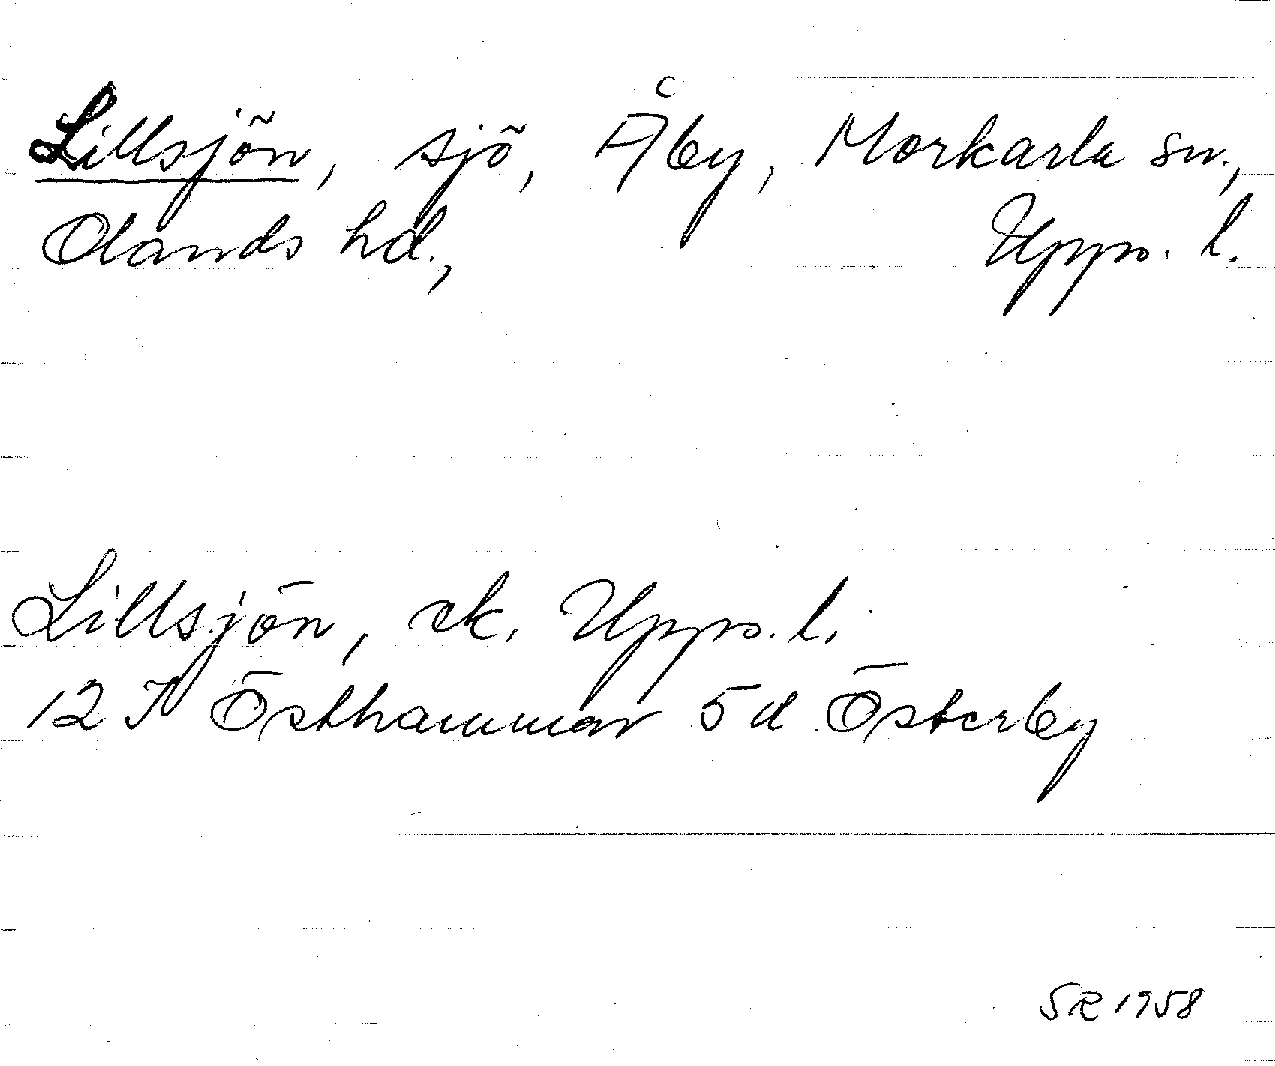 Lillsjön, sjö, Åby, Morkarla sn.,
Olands hd., Upps. l.
Lillsjön, ek. Upps. l.
12 I Östhammar 5d Österby
SR 1958